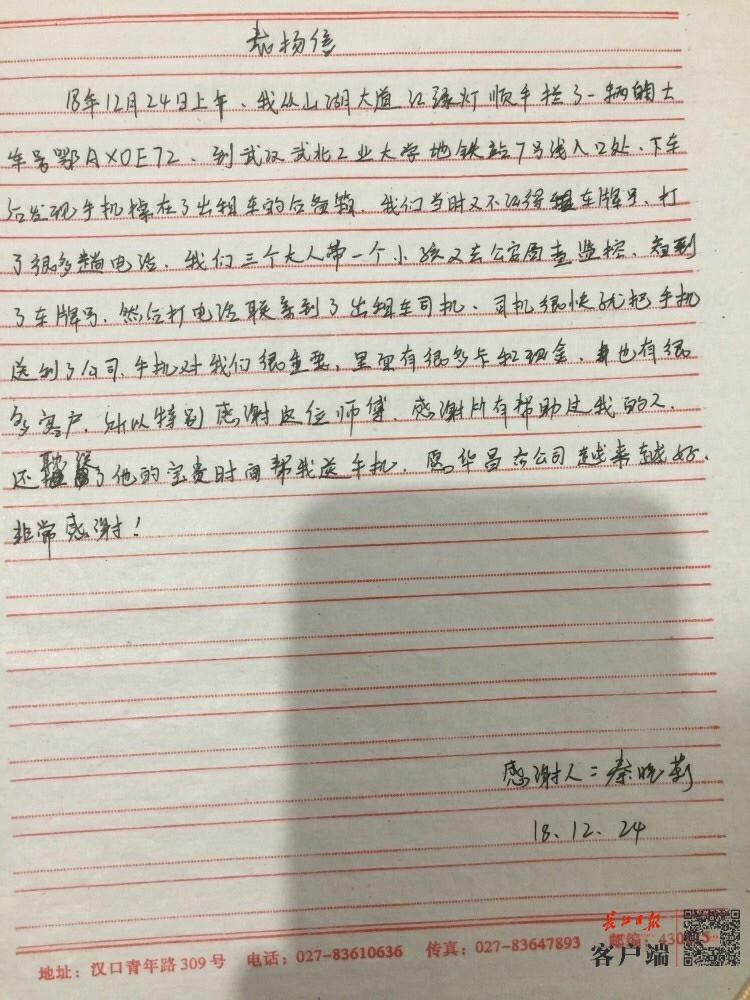 表扬信
18年12月24日上午、我从山湖大道红绿灯顺手拦了一辆的士
车号鄂AX0E72、到武汉武北工业大学地铁站7号线入口处、下车
后发现手机掉在了出租车的后备箱、我们当时又不记得车牌号、打
了很多趟电话、我们三个大人带一个小孩又去公安局查监控、看到
了车牌号、然后打电话联系到了出租车司机、司机很快就把手机
送到了公司、手机对我们很重要、里面有很多卡和现金、也有很
多客户、所以特别感谢这位师傅、感谢所有帮助过我的人、
还耽误了他的宝贵时间帮我送手机、愿华昌公司越来越好、
非常感谢！
感谢人：秦晓莉
18、12、24
长江日报
客户端
地址：汉口青年路309号 电话：027-83610636 传真：027-83647893 邮编：430015